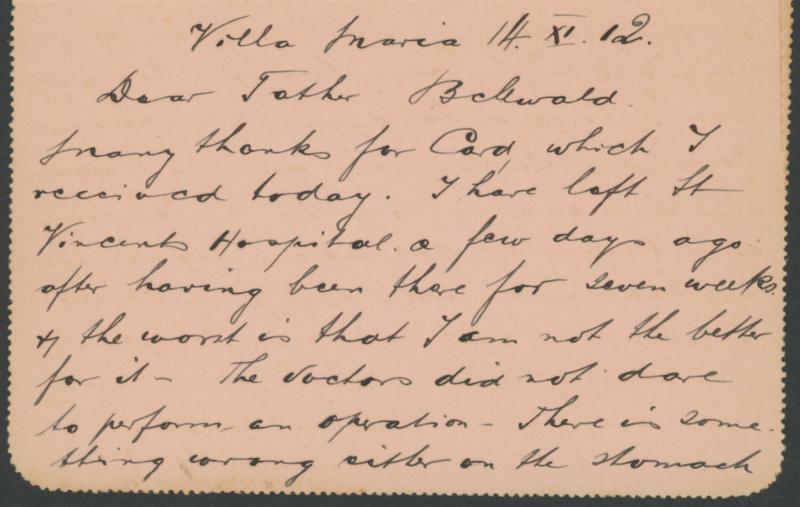 Villa Maria 14. XI. 12.
Dear Father Bckwald.
Many thanks for Card, which I
received today. I have left St
Vincents Hospital. a few days ago
after having been there for seven weeks.
& the worst is that I am not the better
for it – The doctors did not dare
to perform an operation – There is some-
thing wrong either on the stomach